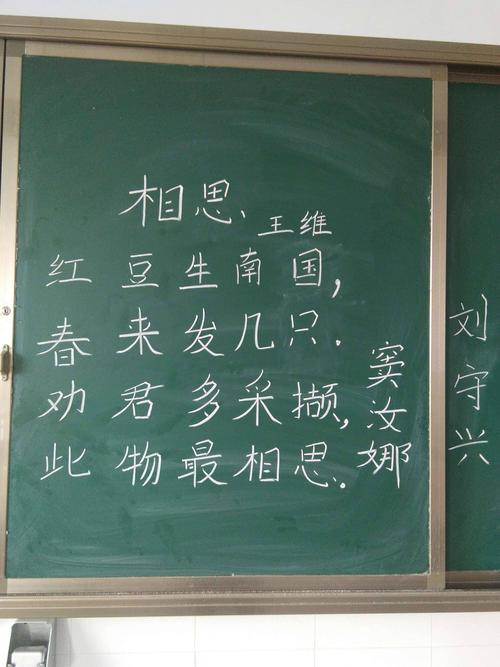 相思
王维
红豆生南国，
春来发几只.
劝君多采撷，
此物最相思.
窦汝娜
刘守兴